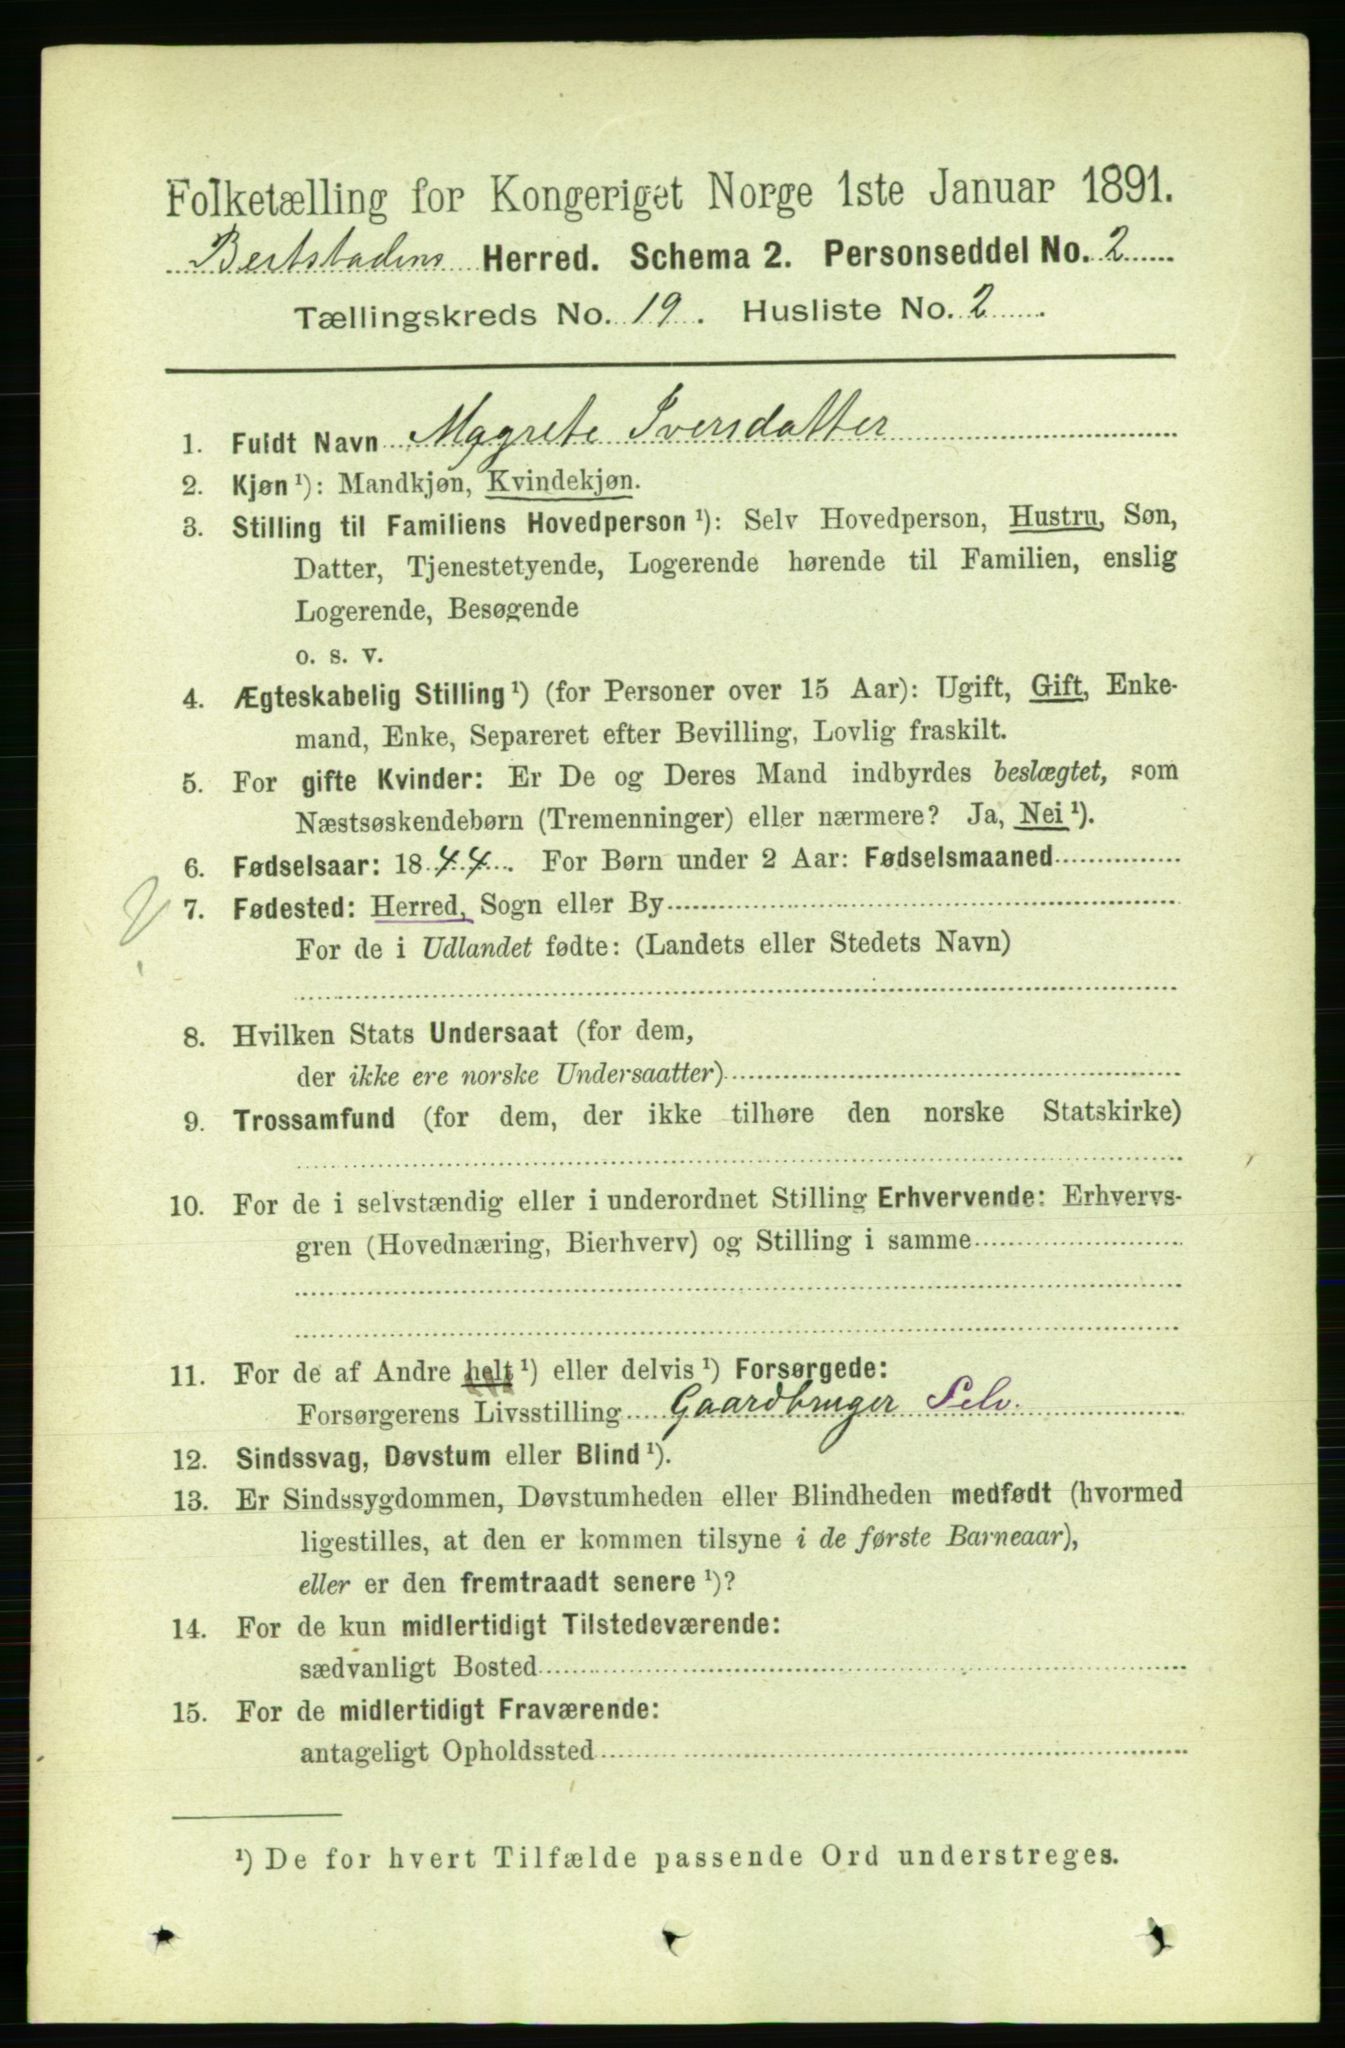 Folketælling for Kongeriget Norge 1ste Januar 1891.
Bertstadens Herred. Schema 2. Personseddel No. 2
Tællingskreds No. 19. Husliste No. 2
1. Fuldt Navn Magrete Iversdatter
2. Kjøn ¹): Mandkjøn, Kvindekjøn.
3. Stilling til Familiens Hovedperson ¹): Selv Hovedperson, Hustru, Søn,
Datter, Tjenestetyende, Logerende hørende til Familien, enslig
Logerende, Besøgende
o. s. v.
4. Ægteskabelig Stilling ¹) (for Personer over 15 Aar): Ugift, Gift, Enke-
mand, Enke, Separeret efter Bevilling, Lovlig fraskilt.
5. For gifte Kvinder: Er De og Deres Mand indbyrdes beslægtet, som
Næstsøskendebørn (Tremenninger) eller nærmere? Ja, Nei ¹).
6. Fødselsaar: 1844. For Børn under 2 Aar: Fødselsmaaned
7. Fødested: Herred, Sogn eller By
For de i Udlandet fødte: (Landets eller Stedets Navn)
8. Hvilken Stats Undersaat (for dem,
der ikke ere norske Undersaatter)
9. Trossamfund (for dem, der ikke tilhøre den norske Statskirke)
10. For de i selvstændig eller i underordnet Stilling Erhvervende: Erhvervs-
gren (Hovednæring, Bierhverv) og Stilling i samme
11. For de af Andre helt ¹) eller delvis ¹) Forsørgede:
Forsørgerens Livsstilling Gaardbruger Selv.
12. Sindssvag, Døvstum eller Blind ¹).
13. Er Sindssygdommen, Døvstumheden eller Blindheden medfødt (hvormed
ligestilles, at den er kommen tilsyne i de første Barneaar),
eller er den fremtraadt senere ¹)?
14. For de kun midlertidigt Tilstedeværende:
sædvanligt Bosted
15. For de midlertidigt Fraværende:
antageligt Opholdssted
¹) De for hvert Tilfælde passende Ord understreges.